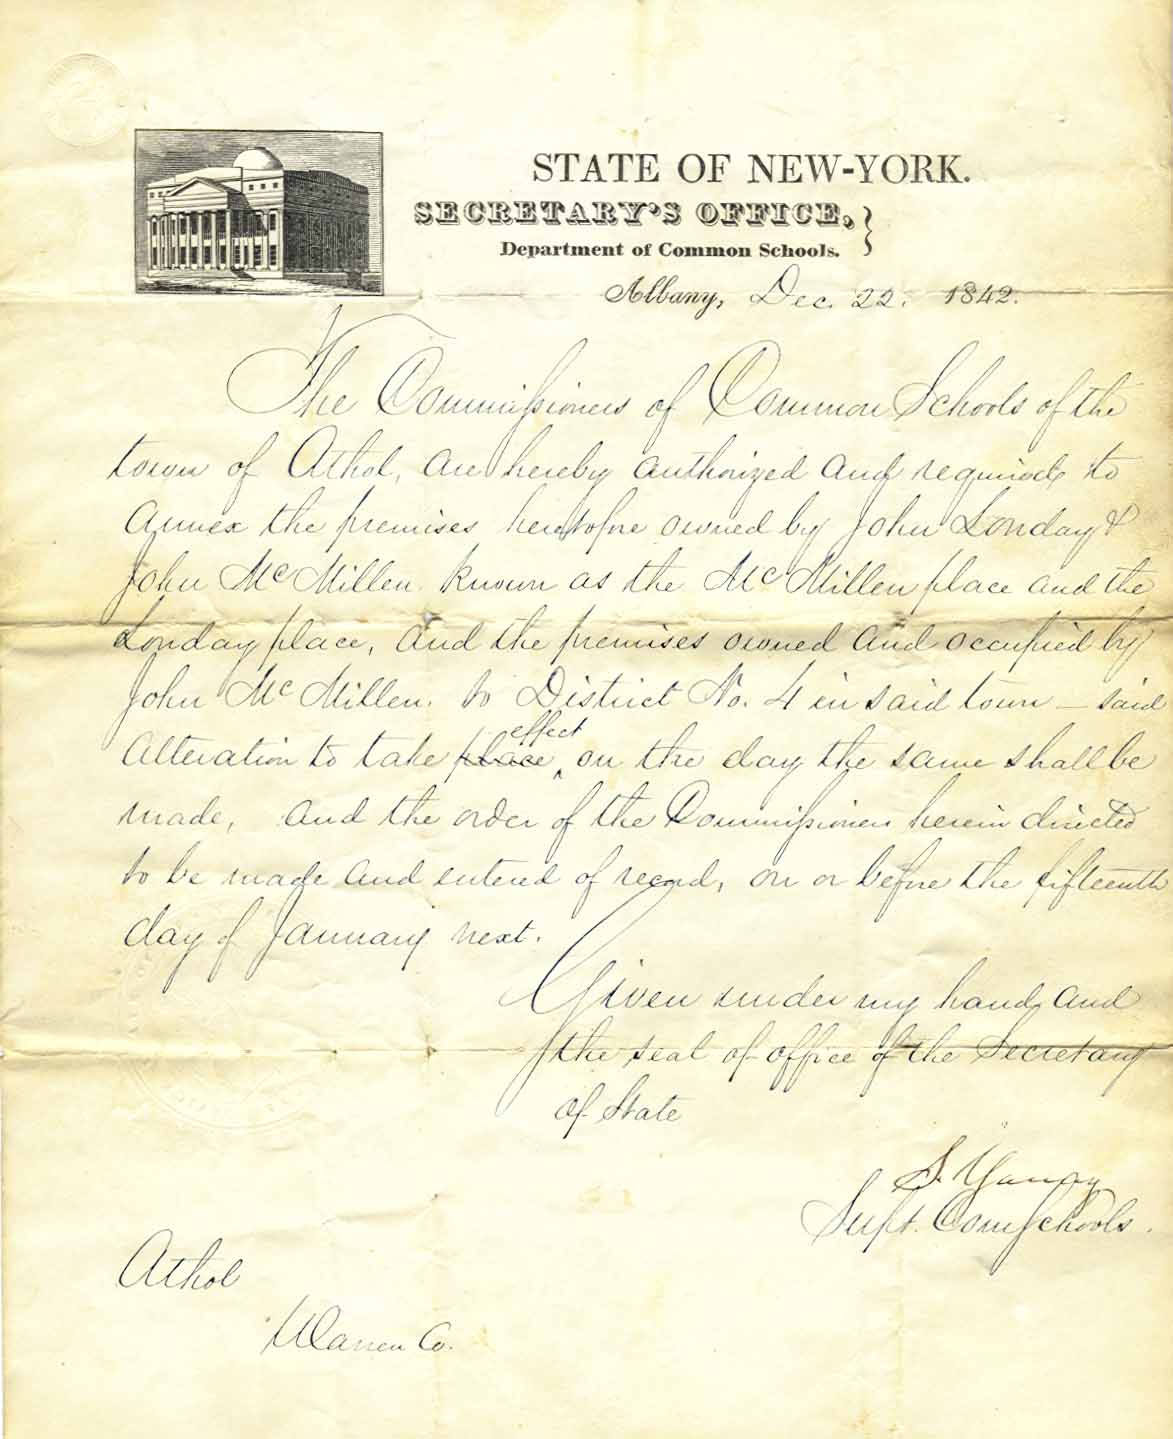 STATE OF NEW-YORK.
SECRETARY'S OFFICE,
Department of Common Schools.
Albany, Dec. 22. 1842.
The Commissioners of Common Schools of the
town of Athol, are hereby authorized and required to
annex the premises heretofore owned by John Londay &
John McMillen known as the McMillen place and the
Londay place, and the premises owned and occupied by
John McMillen. to District No. 4 in said town – said
effect
alteration to take place ‸ on the day the same shall be
made, and the order of the Commissioners herein directed
to be made and entered of record, on or before the fifteenth
day of January next.
Given under my hand and
the seal of office of the Secretary
of State
S. Young
Supt. Com Schools.
Athol
Warren Co.